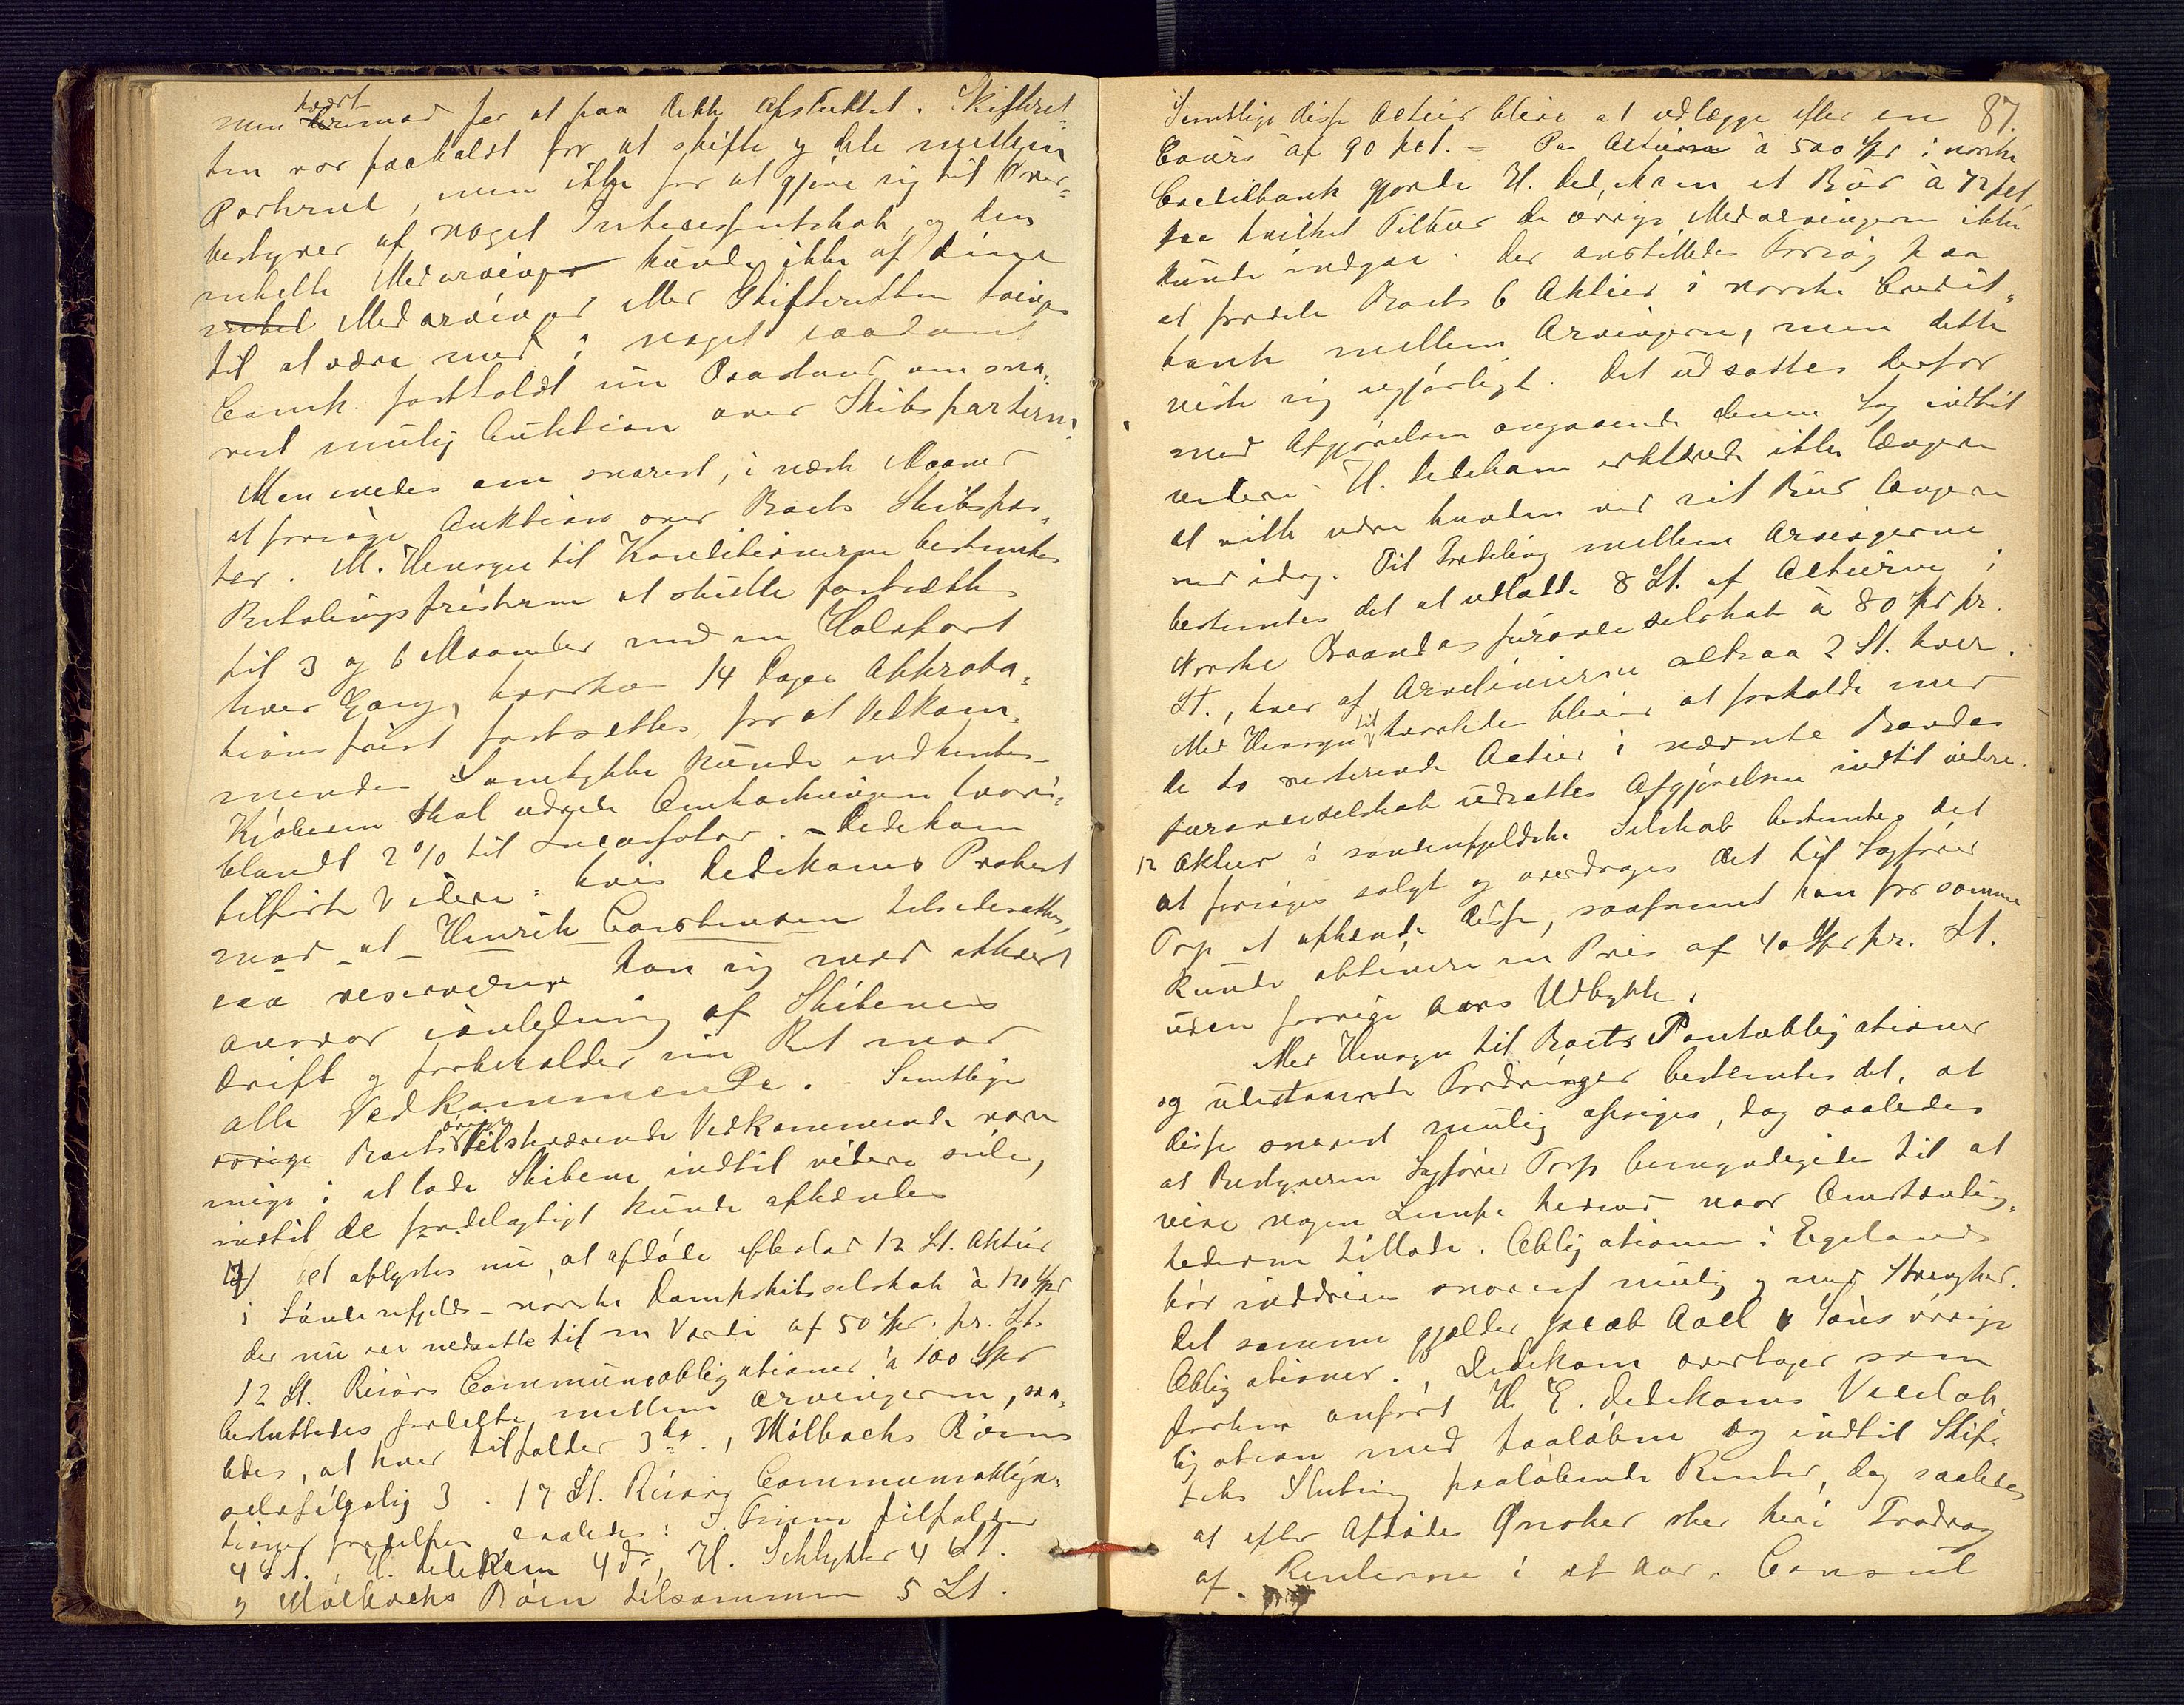 hvert
men for at faa dette afsluttet. Skifteret-
ten var paakaldt for at skifte og dele mellem
Parterne, men ikke for at gjøre sig til Over-
bestyrer af noget Interessentskab, og den
enkelte Medarving kunde ikke af sine
Medarvinger eller Skifteretten tvinges
til at være med i noget saadant
Comp. fastholdt sin Paastand om sna-
rest mulig Auktion over Skibsparterne.
Man enedes om snarest, i næste Maaned
at forsøge Auktion over Boets Skibspar-
ter. M. Hensyn til Konditionerne bestemtes
Betalingsfristerne at skulle fastsættes
til 3 og 6 Maaneder med en Halvpart
hver Gang, hvorhos 14 Dages Approba-
tionsfrist fastsettes, for at Vedkom-
mendes Samtykke kunde indhentes.
Kjøberen skal udrede Omkostningen hvori-
blandt 2% til Incassator. – Dedekam
tilførte videre: hvis Dedekams Protest
mod at Henrik Carstensen tilsidesættes,
saa reserverer han sig mod ethvert
ansvar ianledning af Skibenes
Drift og forbeholder sin Ret mod
alle Vedkommende. – Samtlige
øvrige
Boets tilstedeværende Vedkommende vare
enige i at lade Skibene indtil videre seile,
indtil de fordelagtigt kunde afhændes
Det oplystes nu, at afdøde efterlod 12 St. Aktier
i Søndenfjelds-norske Dampskibsselskab à 120 Spd
der nu var nedsatte til en Værdi af 50 Spd. pr. St.
12 St. Risørs Communeobligationer à 100 Spd
besluttedes fordelte mellem Arvingerne, saa-
ledes, at hver tilfalder 3 do., Mølbachs Børn
selvfølgelig 3. 17 St. Risørs Communeobliga-
tioner fordeltes saaledes: J. Finne tilfalder
4 St., H. Dedekam 4 do, H. Schlytter 4 St.
og Mølbachs Børn tilsammen 5 St.
87.
Samtlige disse Actier blive at udlægge efter en
Cours af 90 pct. – Paa Actierne à 500 Spd i norske
Creditbank gjorde H. Dedekam et Bud à 72 pct,
paa hvilket Tilbud de øvrige Medarvingerne ikke
kunde indgaa. Der anstilledes Forsøg paa
at fordele Boets 6 Aktier i norske Credit-
bank mellem Arvingerne, men dette
viste sig ugjørligt. Det udsattes derfor
med Afgjørelsen angaaende denne Sag indtil
videre. H. Dedekam erklærede ikke længere
at ville være bunden ved sit Bud længere
end idag. Til Fordeling mellem Arvingerne
bestemtes det at udlodde 8 St. af Actierne i
Norske Brandassuranceselskab à 80 Spd pr.
St., hver af Arvelinierne altsaa 2 St. hver.
til
Med Hensyn hvorledes bliver at forholde med
de to resterende Actier i nævnte Brandas
suranceselskab udsattes Afgjørelsen indtil videre.
12 Aktier i søndenfjeldske Selskab bestemtes det
at forsøges solgt og overdroges det til Sagfører
Torp at afhænde disse, saafremt han for samme
kunde obtinere en Pris af 40 Spd pr. St.
uden forrige Aars Udbytte.
Med Hensyn til Boets Pantobligationer
og udestaaende Fordringer bestemtes det, at
disse snarest mulig opsiges, dog saaledes
at Bestyreren Sagfører Torp bemyndigedes til at
vise nogen Lempe herved naar Omstændig-
hederne tillode. Obligationen i Egelands
bør inddrives snarest mulig og med Strenghed.
Det samme gjælder Jacob Aall & Søns øvrige
Obligationer. Dedekam overtager som
forhen anført H. E. Dedekams Vexelob-
ligation med paaløbne og indtil Skif-
tets Slutning paaløbende Renter, dog saaledes
at efter Afdødes Ønsker sker heri Fradrag
af Renterne i et Aar. Consul